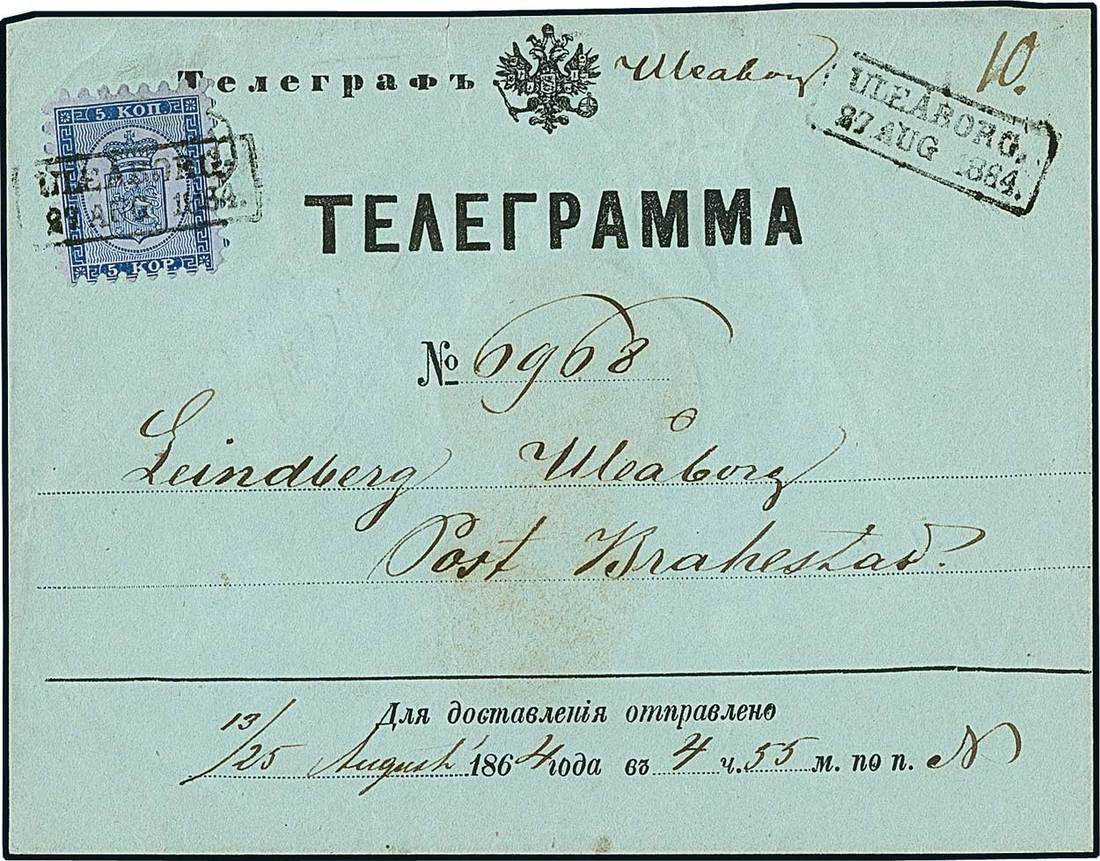 Телеграфъ Uleaborg 10.
5. КОП
ULEABORG.
27 AUG. 1884.
5. KOP.
ULEABORG.
27 AUG 1884.
ТЕЛЕГРАММА
№ 6968
Leindberg Uleåborg
Post Brahestad.
Для доставленія отправлено
13/
/25 August 1864 года въ 4 ч. 55 м. по п. N